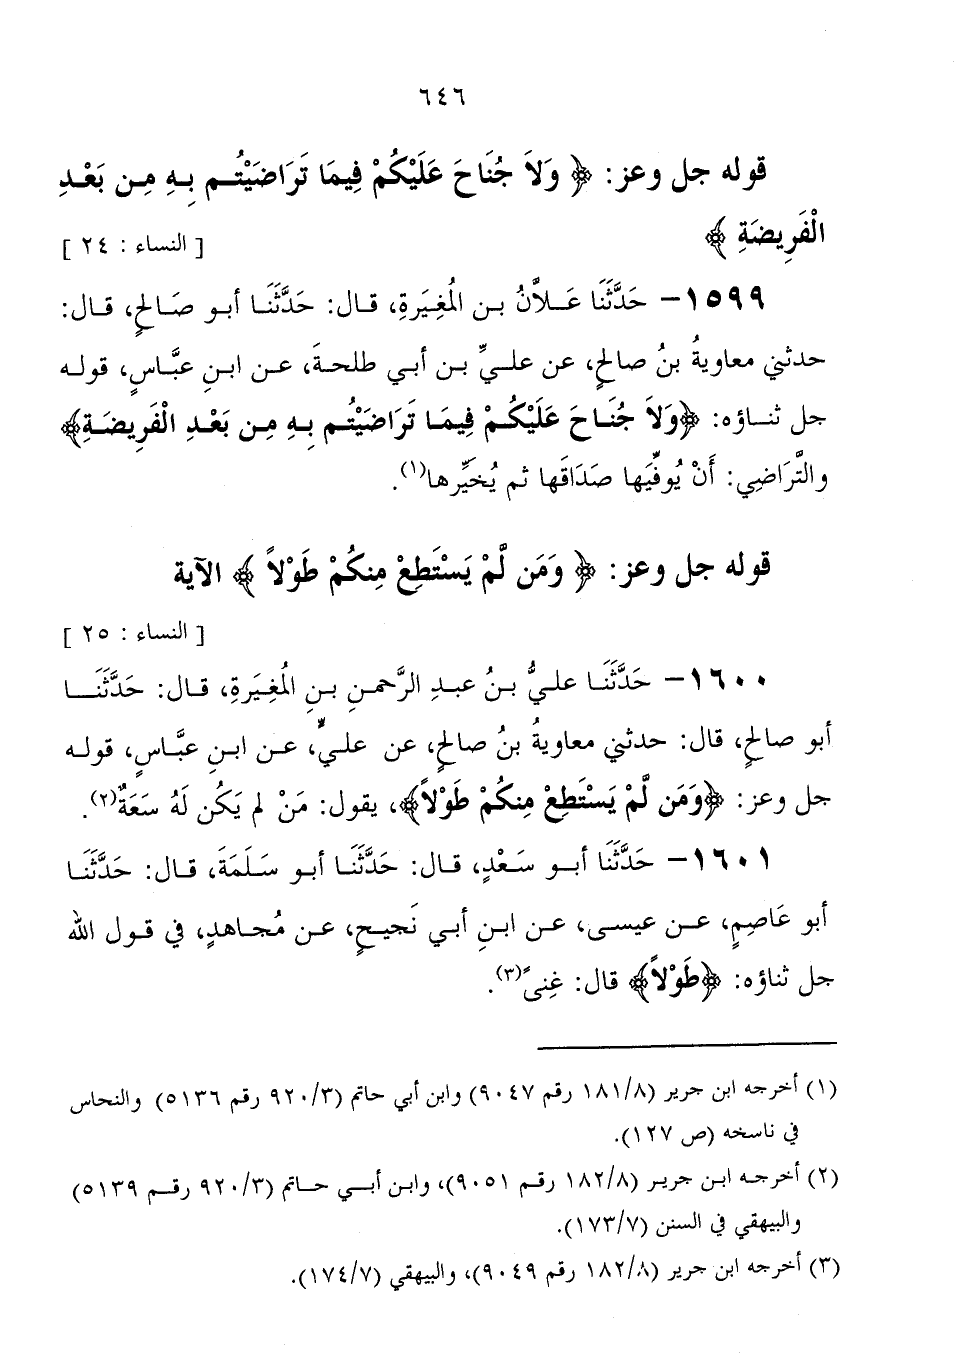 ٦٤٦
قوله جل وعز: ﴿ وَلاَ جُنَاحَ عَلَيْكُمْ فِيمَا تَرَاضَيْتُـم بِـهِ مِـن بَعْـدِ
الْفَرِيضَةِ ﴾ [ النساء : ٢٤ ]
١٥٩٩– حَدَّثَنَا عَـلاَّنُ بـن الْمُغِيَرةِ، قـال: حَدَّثَنَـا أبـو صَـالحٍ، قـال:
حدثني معاويةُ بنُ صالحٍ، عن علـيِّ بـن أبي طلحـةَ، عـن ابـنِ عبَّـاسٍ، قولـه
جل ثنــاؤه: ﴿وَلاَ جُنَـاحَ عَلَيْكُـمْ فِيمَـا تَرَاضَيْتُـم بِـهِ مِـن بَعْـدِ الْفَرِيضَـةِ﴾
والتَّرَاضِي: أَنْ يُوفِّيَها صَدَاقَها ثم يُخَيِّرها(١).
قوله جل وعز: ﴿ وَمَن لَّمْ يَسْتَطِعْ مِنكُمْ طَوْلاً ﴾ الآية
[ النساء : ٢٥ ]
١٦٠٠– حَدَّثَنَـا علـيُّ بـنُ عبـدِ الرَّحمـنِ بـنِ الْمُغِيَرةِ، قـال: حَدَّثَنَــا
أبو صالحٍ، قال: حدثني معاويةُ بنُ صالحٍ، عن علـيٍّ، عـن ابـنِ عبَّـاسٍ، قولـه
جل وعز: ﴿وَمَن لَّمْ يَسْتَطِعْ مِنكُمْ طَوْلاً﴾، يقول: مَنْ لم يَكُن لَهُ سَعَةٌ(٢).
١٦٠١– حَدَّثَنَا أبــو سَـعْدٍ، قـال: حَدَّثَنَـا أبـو سَـلَمَةَ، قـال: حَدَّثَنَـا
أبو عَاصِمٍ، عـن عيسـى، عـن ابـنِ أبـي نَجيـحٍ، عـن مُجـاهدٍ، في قـول الله
جل ثناؤه: ﴿طَوْلاً﴾ قال: غِنىً(٣).
(١) أخرجه ابن جرير (١٨١/٨ رقم ٩٠٤٧) وابن أبي حاتم (٩٢٠/٣ رقم ٥١٣٦) والنحاس
في ناسخه (ص ١٢٧).
(٢) أخرجـه ابـن جريـر (١٨٢/٨ رقـم ٩٠٥١)، وابـن أبــي حـاتم (٩٢٠/٣ رقــم ٥١٣٩)
والبيهقي في السنن (١٧٣/٧).
(٣) أخرجه ابن جرير (١٨٢/٨ رقم ٩٠٤٩)، والبيهقي (١٧٤/٧).